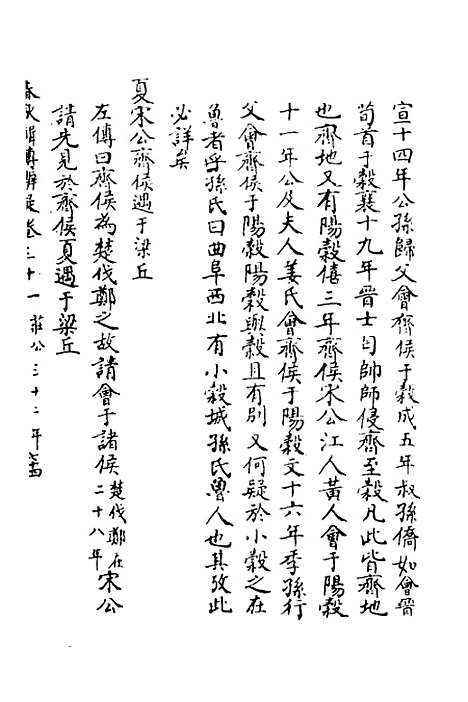 宣十四年公孫歸父會齊侯于穀成五年叔孫僑如會晉
荀首于穀襄十九年晉士匄帥師侵齊至穀凡此皆齊地
也齊地又有陽穀僖三年齊侯宋公江人黃人會于陽穀
十一年公及夫人姜氏會齊侯于陽穀文十六年季孫行
父會齊侯于陽穀陽穀與穀且有別又何疑於小穀之在
魯者乎孫氏曰曲阜西北有小穀城孫氏魯人也其攷此
必詳矣
夏宋公齊侯遇于梁丘
左傳曰齊侯為楚伐鄭之故請會于諸侯楚伐鄭在二十八年宋公
請先見於齊侯夏遇于梁丘
春秋輯傳辨疑卷三十一 莊公三十二年